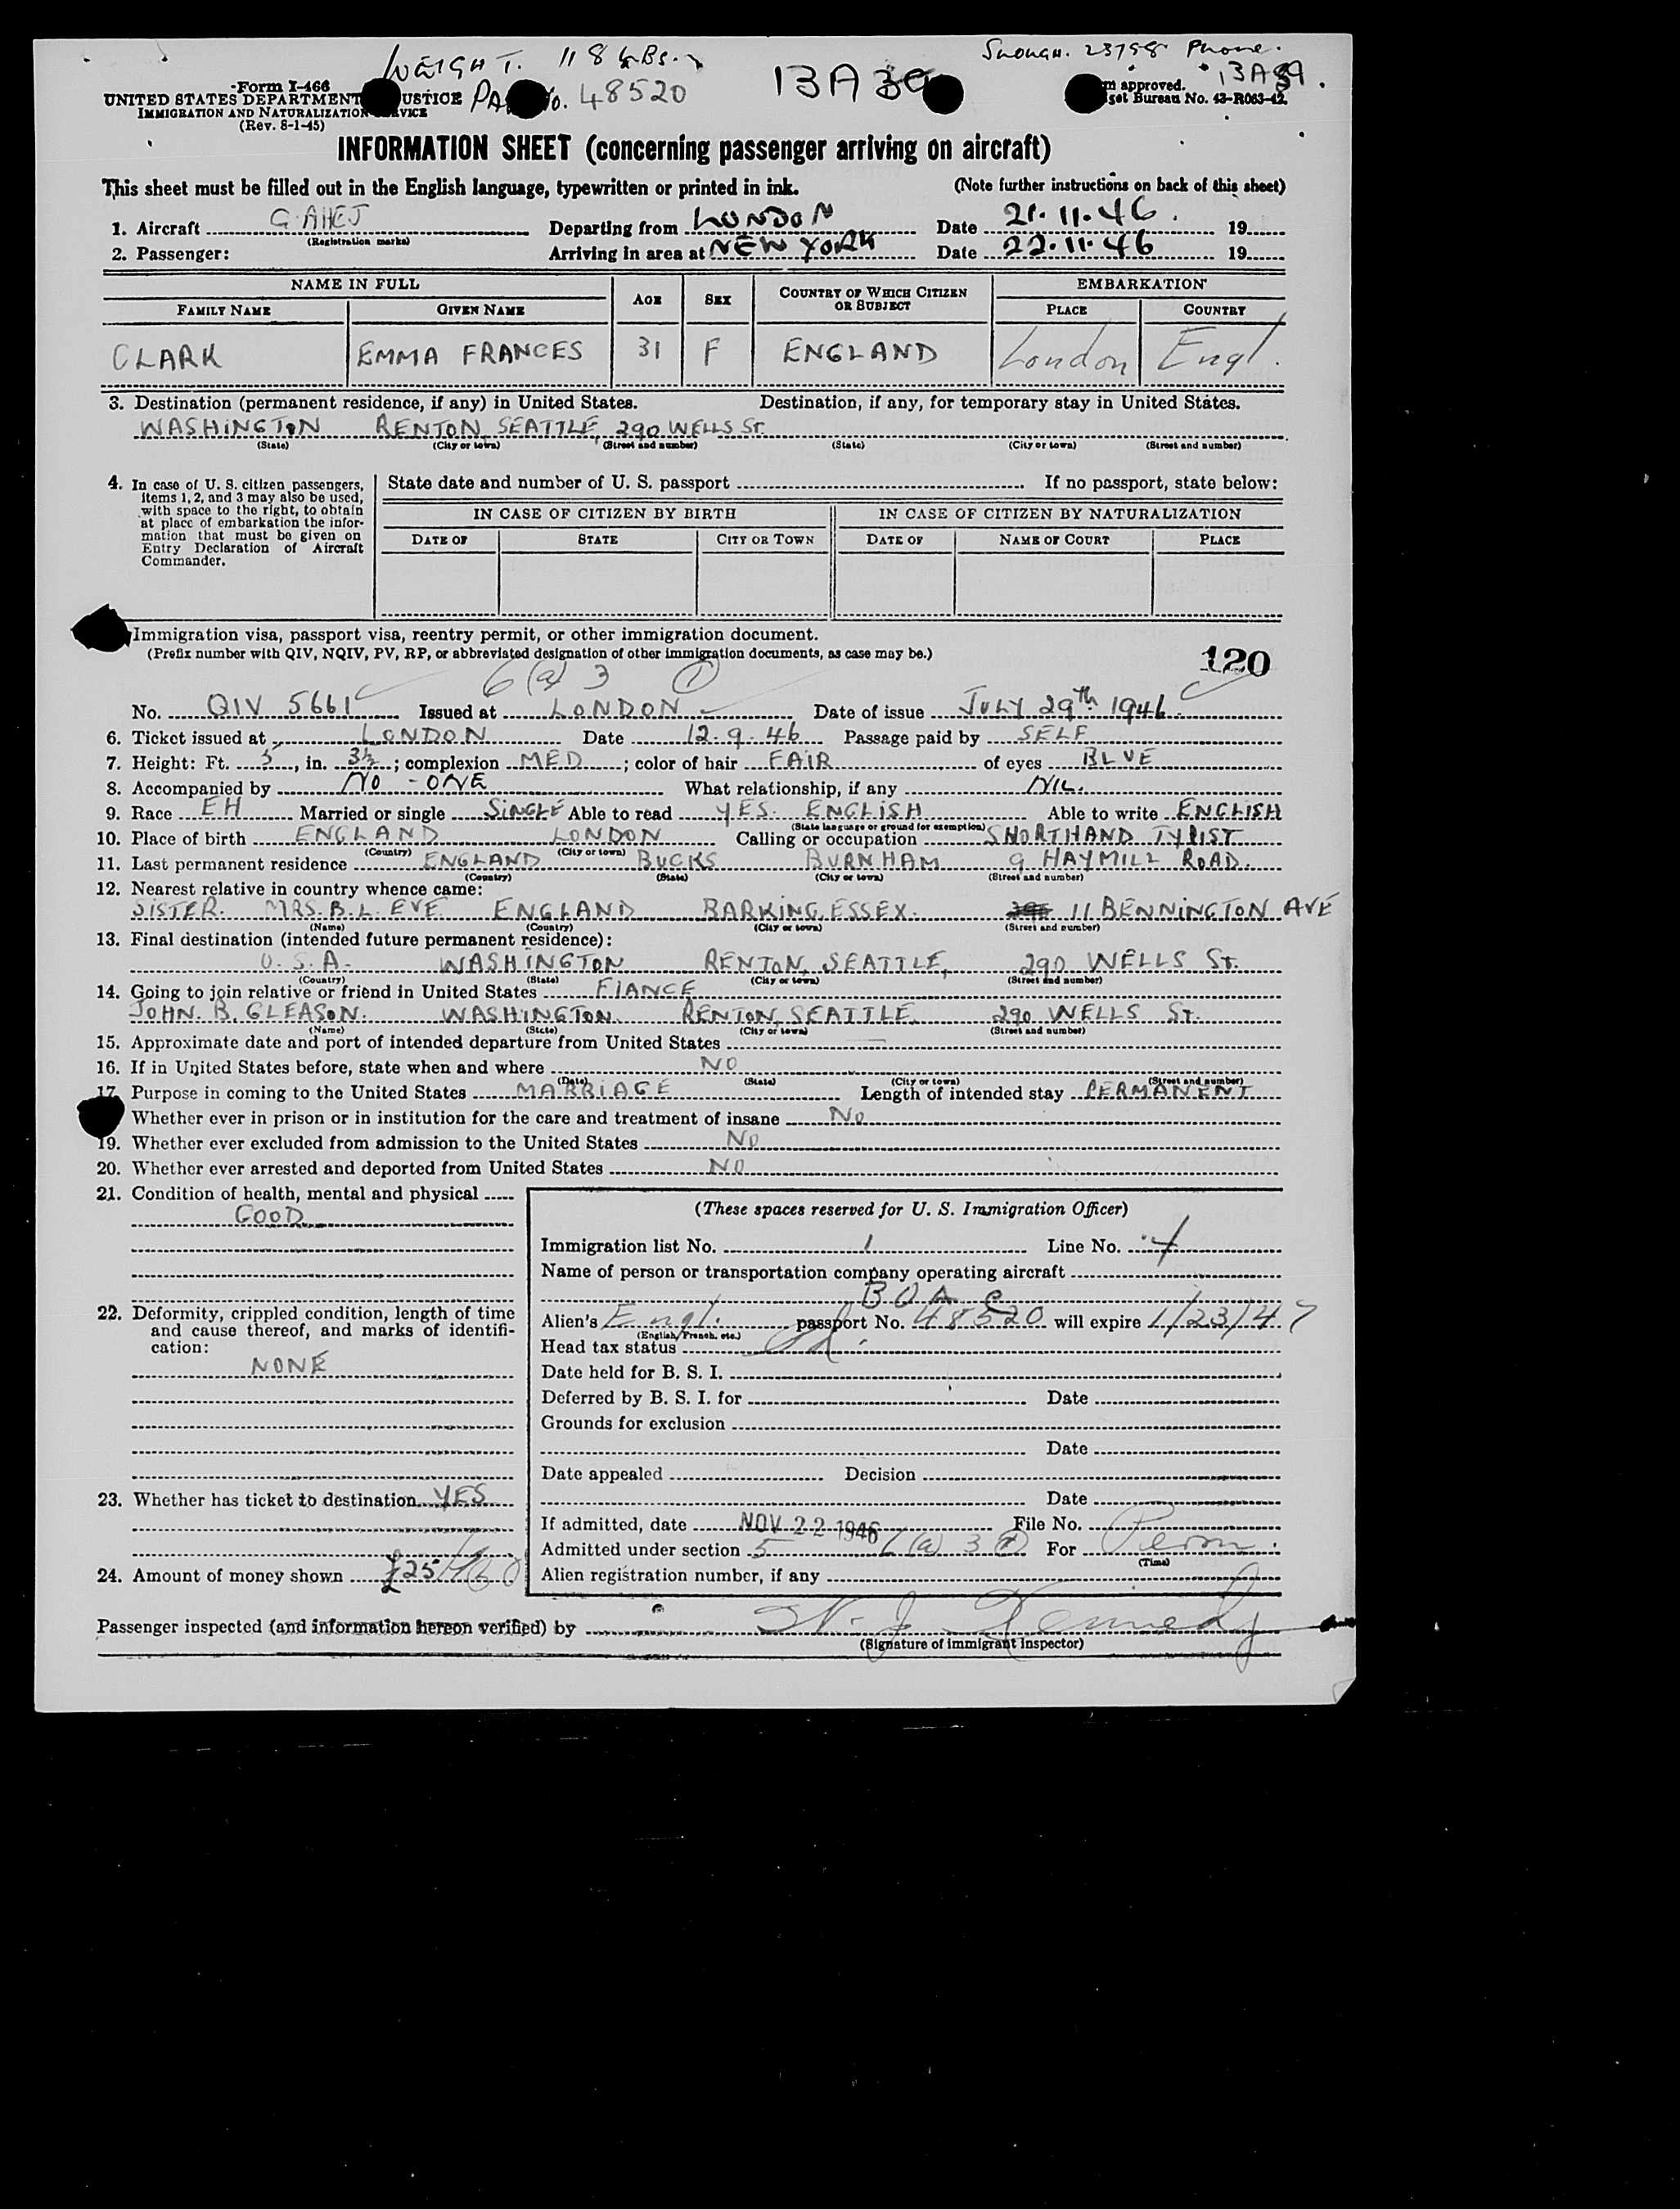 WEIGHT. 118 LBS. SLOUGH. 23798 Phone.
Form I-466 13A 13A39.
UNITED STATES DEPARTMENT USTICE PA o. 48520 m approved.
IMMIGRATION AND NATURALIZATION RVICE get Bureau No. 43-R063-42.
(Rev. 8-1-45)
INFORMATION SHEET (concerning passenger arriving on aircraft)
This sheet must be filled out in the English language, typewritten or printed in ink. (Note further instructions on back of this sheet)
1. Aircraft G AHEJ Departing from LONDON Date 21.11.46. 19
(Registration marks)
2. Passenger: Arriving in area at NEW YORK Date 22.11.46 19
NAME IN FULL AGE SEX COUNTRY OF WHICH CITIZEN OR SUBJECT EMBARKATION
FAMILY NAME GIVEN NAME PLACE COUNTRY
CLARK EMMA FRANCES 31 F ENGLAND London Engl.
3. Destination (permanent residence, if any) in United States. Destination, if any, for temporary stay in United States.
WASHINGTON RENTON, SEATTLE, 290 WELLS ST.
(State) (City or town) (Street and number) (State) (City or town) (Street and number)
4. In case of U. S. citizen passengers, State date and number of U. S. passport If no passport, state below:
items 1, 2, and 3 may also be used,
with space to the right, to obtain IN CASE OF CITIZEN BY BIRTH IN CASE OF CITIZEN BY NATURALIZATION
at place of embarkation the infor-
mation that must be given on DATE OF STATE CITY OR TOWN DATE OF NAME OF COURT PLACE
Entry Declaration of Aircraft
Commander.
Immigration visa, passport visa, reentry permit, or other immigration document.
(Prefix number with QIV, NQIV, PV, RP, or abbreviated designation of other immigration documents, as case may be.) 120
6 (a) 3 (1)
No. QIV 5661 Issued at LONDON Date of issue JULY 29th 1946
6. Ticket issued at LONDON Date 12.9.46 Passage paid by SELF
7. Height: Ft. 5, in. 3½; complexion MED; color of hair FAIR of eyes BLUE
8. Accompanied by NO-ONE What relationship, if any NIL.
9. Race EH Married or single SINGLE Able to read YES. ENGLISH Able to write ENGLISH
(State language or ground for exemption)
10. Place of birth ENGLAND LONDON Calling or occupation SHORTHAND TYPIST
(Country) (City or town)
11. Last permanent residence ENGLAND BUCKS BURNHAM 9 HAYMILL ROAD.
(Country) (State) (City or town) (Street and number)
12. Nearest relative in country whence came:
SISTER. MRS. B.L. EVE ENGLAND BARKING, ESSEX. 11 BENNINGTON AVE
(Name) (Country) (City or town) (Street and number)
13. Final destination (intended future permanent residence):
U.S.A. WASHINGTON RENTON, SEATTLE, 290 WELLS ST.
(Country) (State) (City or town) (Street and number)
14. Going to join relative or friend in United States FIANCE
JOHN. B. GLEASON. WASHINGTON. RENTON, SEATTLE 290 WELLS ST.
(Name) (State) (City or town) (Street and number)
15. Approximate date and port of intended departure from United States
16. If in United States before, state when and where NO
(Date) (State) (City or town) (Street and number)
17. Purpose in coming to the United States MARRIAGE Length of intended stay PERMANENT
Whether ever in prison or in institution for the care and treatment of insane No
19. Whether ever excluded from admission to the United States No
20. Whether ever arrested and deported from United States NO
21. Condition of health, mental and physical
GOOD
22. Deformity, crippled condition, length of time
and cause thereof, and marks of identifi-
cation:
NONE
23. Whether has ticket to destination YES
24. Amount of money shown £25
(These spaces reserved for U. S. Immigration Officer)
Immigration list No. 1 Line No. 4
Name of person or transportation company operating aircraft
BOAC
Alien's Engl. passport No. 48520 will expire 1/23/47
(English, French, etc.)
Head tax status Pd
Date held for B. S. I.
Deferred by B. S. I. for Date
Grounds for exclusion
Date
Date appealed Decision
Date
If admitted, date NOV 22 1946 File No.
Admitted under section 5 6 (a) 3 (1) For Perm.
(Time)
Alien registration number, if any
Passenger inspected (and information hereon verified) by W. J. Kennedy
(Signature of immigrant inspector)